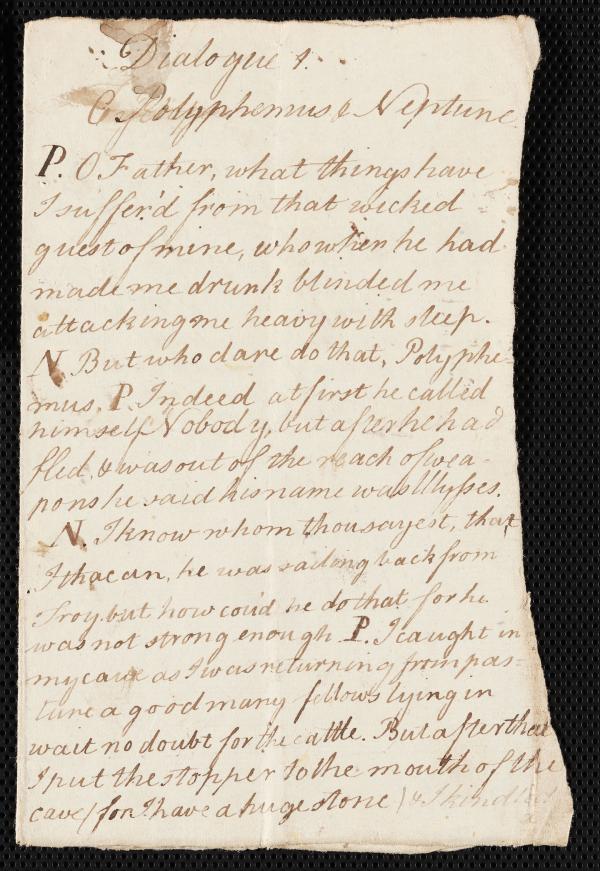 Dialogue 1.
Polyphemus & Neptune
P. O Father, what things have
I suffer'd from that wicked
guest of mine, who when he had
made me drunk blinded me
attacking me heavy with sleep.
N. But who dare do that, Polyphe-
mus. P. Indeed at first he called
himself Nobody, but after he had
fled & was out of the reach of wea-
pons he said his name was Ulysses.
N. I know whom thou sayest, that
Ithacan, he was sailing back from
Troy, but how could he do that for he
was not strong enough. P. I caught in
my cave as I was returning from pas-
ture a good many fellows lying in
wait no doubt for the cattle. But after that
I put the stopper to the mouth of the
cave (for I have a huge stone) & I kindled